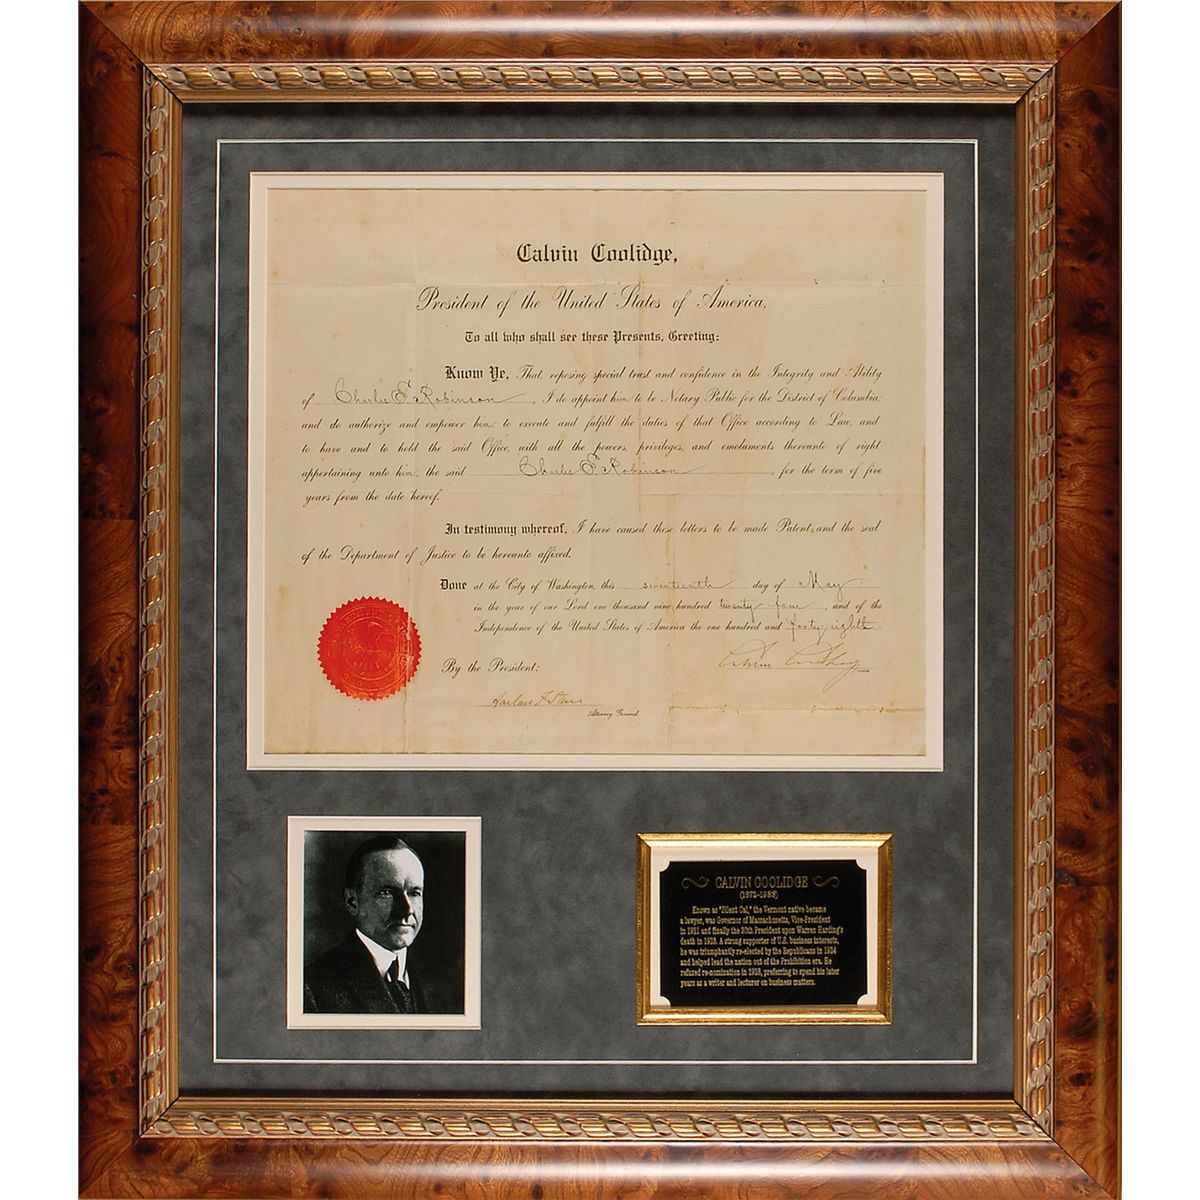 Calvin Coolidge,
President of the United States of America,
To all who shall see these Presents, Greeting:
Know Ye, That, reposing special trust and confidence in the Integrity and Ability
of Charlie E. Robinson, I do appoint him to be Notary Public for the District of Columbia;
and do authorize and empower him to execute and fulfill the duties of that Office according to Law, and
to have and to hold the said Office, with all the powers, privileges, and emoluments thereunto of right
appertaining unto him, the said Charlie E. Robinson, for the term of five
years from the date hereof.
In testimony whereof, I have caused these letters to be made Patent, and the seal
of the Department of Justice to be hereunto affixed.
Done at the City of Washington, this seventeenth day of May
in the year of our Lord one thousand nine hundred twenty-four, and of the
Independence of the United States of America the one hundred and forty-eighth.
Calvin Coolidge
By the President:
Harlan F. Stone
Attorney General
CALVIN COOLIDGE
(1872-1933)
Known as "Silent Cal," the Vermont native became
a lawyer, was Governor of Massachusetts, Vice-President
in 1921 and finally the 30th President upon Warren Harding's
death in 1923. A strong supporter of U.S. business interests,
he was triumphantly re-elected by the Republicans in 1924
and helped lead the nation out of the Prohibition era. He
refused re-nomination in 1928, preferring to spend his later
years as a writer and lecturer on business matters.